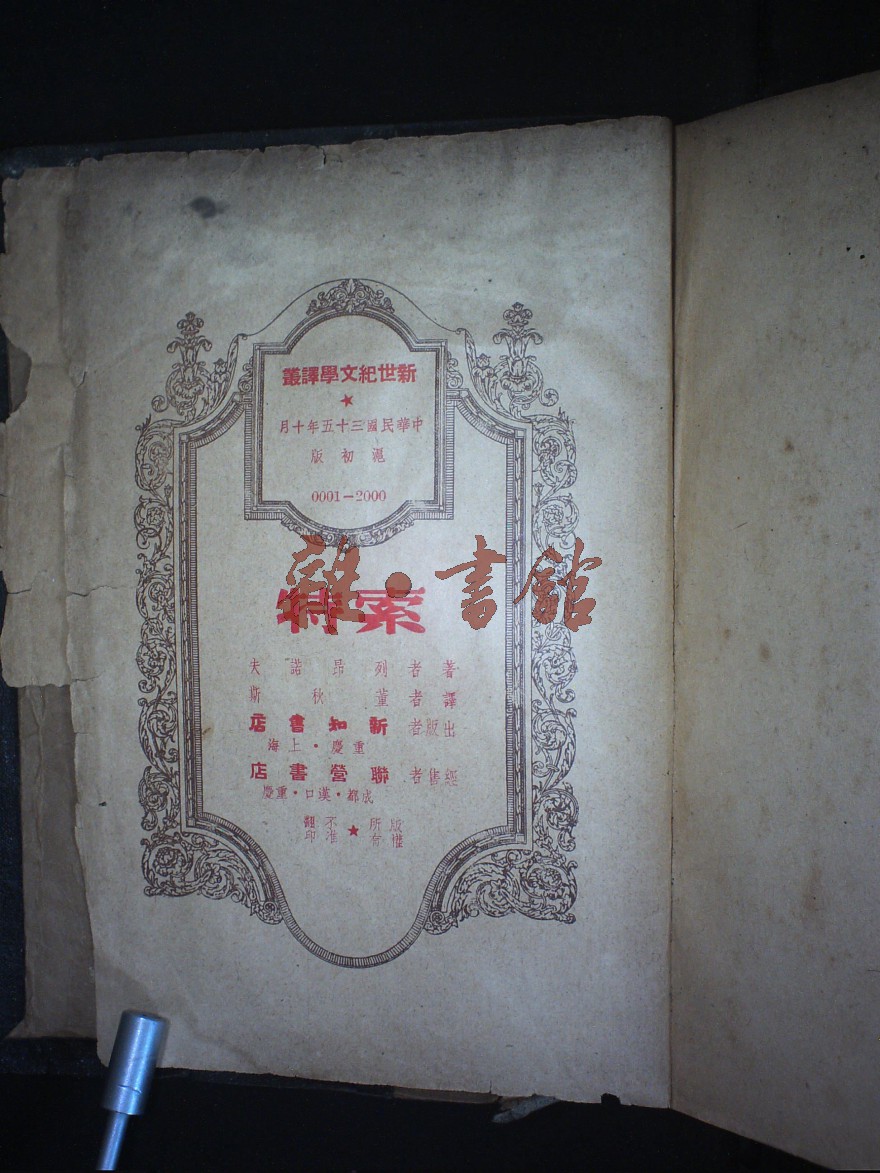 新世紀文學譯叢
★
中華民國三十五年十月
滬初版
0001－2000
索特
雜·書館
著者 列昂諾夫
譯者 董秋斯
出版者 新知書店
重慶·上海
經售者 聯營書店
成都·漢口·重慶
版權所有★不准翻印